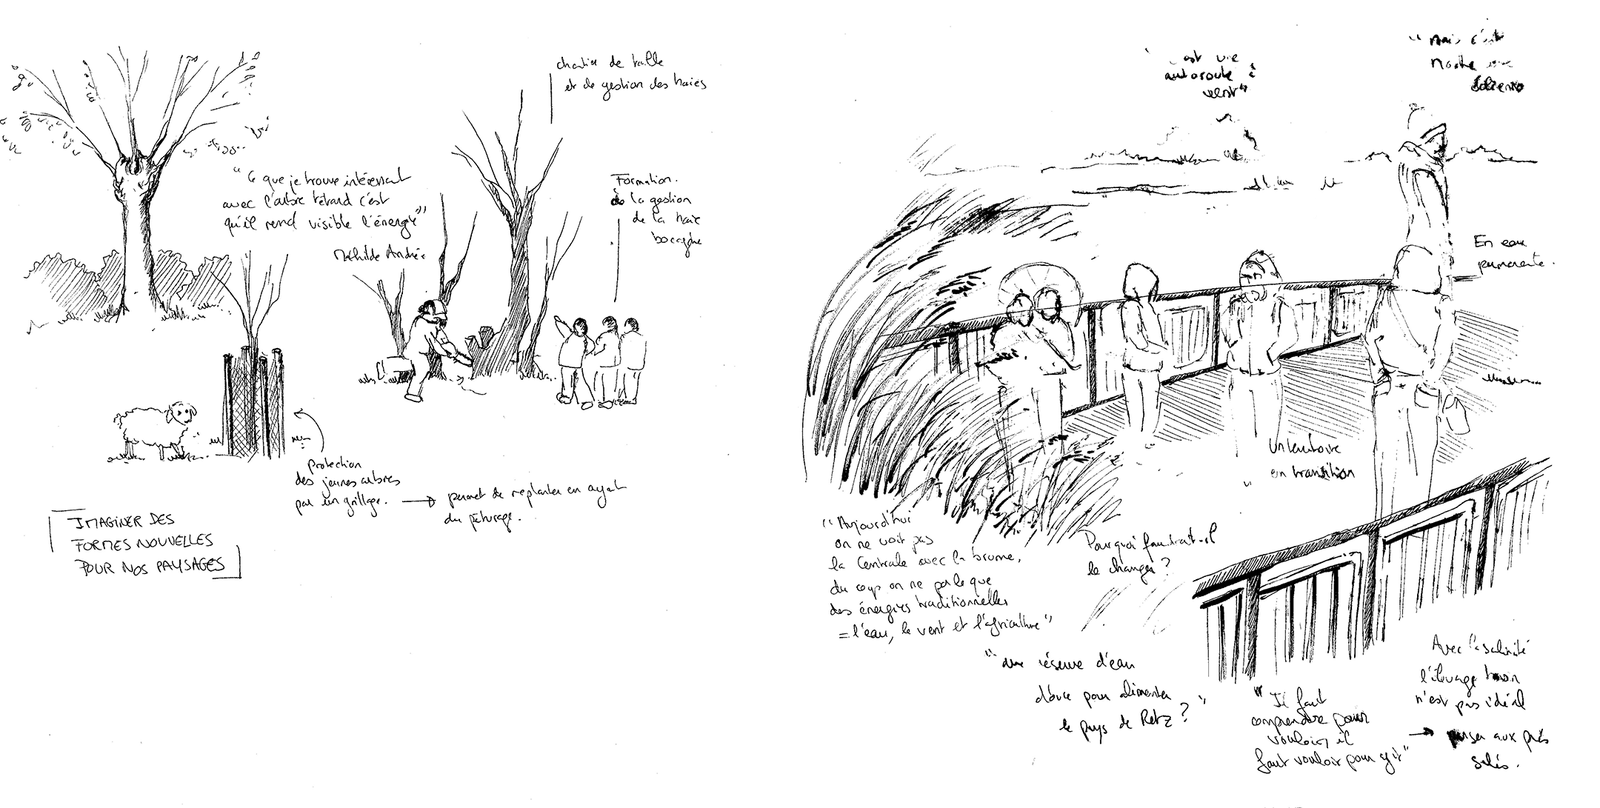 chantier de taille
et de gestion des haies
"Ce que je trouve intéressant
avec l'arbre têtard c'est
qu'il rend visible l'énergie"
Mathilde André
Formation
à la gestion
de la haie
bocagère
protection
des jeunes arbres
par un grillage. → permet de replanter en ayant
du pâturage.
IMAGINER DES
FORMES NOUVELLES
POUR NOS PAYSAGES
est une
autoroute à
vent"
"Mais c'est
notre
En eau
permanente.
Un territoire
en transition
"Aujourd'hui
on ne voit pas
la Centrale avec la brume,
du coup on ne parle que
des énergies traditionnelles
= l'eau, le vent et l'agriculture"
Pourquoi faudrait-il
le changer ?
"une réserve d'eau
douce pour alimenter
le pays de Retz ?"
"Il faut
comprendre pour
vouloir et
faut vouloir pour agir"
Avec la salinité
l'élevage
n'est pas idéal
→ penser aux prés
salés.